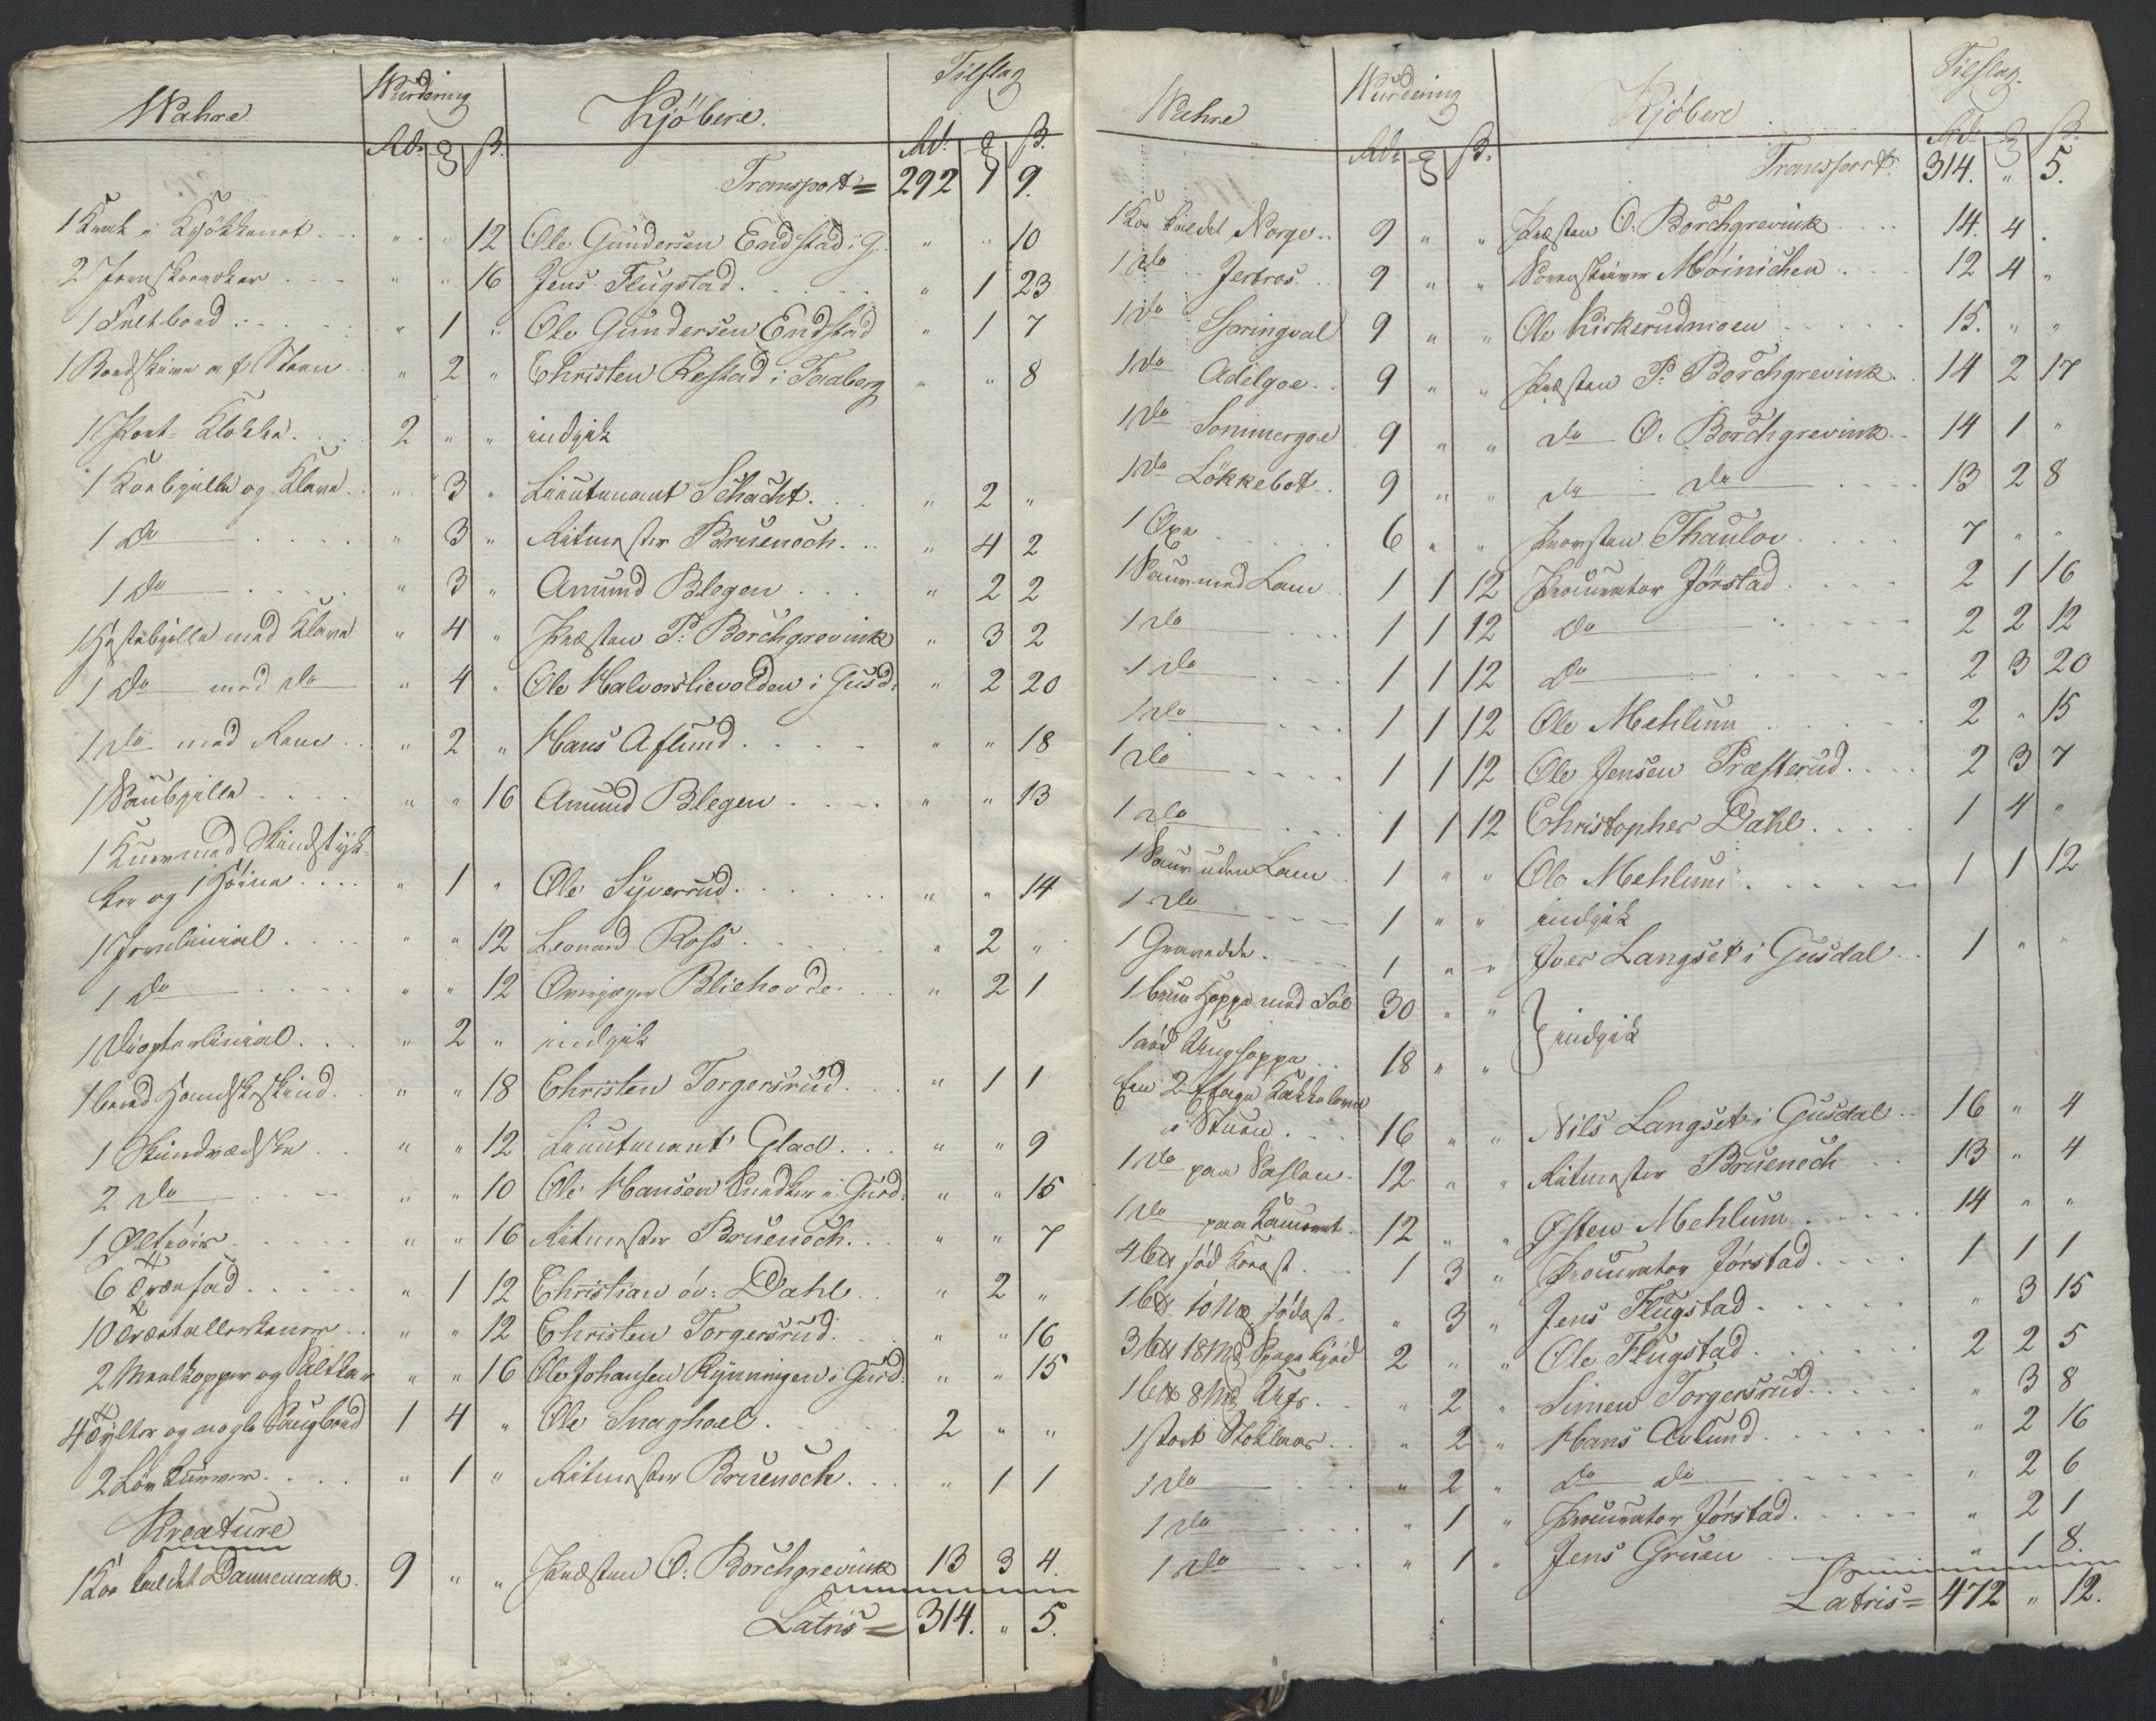 Wahre Wurdering Kjöbere. Tilslag
Rd. ß. Rd. ß.
Transport = 292 1 9.
1 Krak i Kjökkenet . . " " 12 Ole Gundersen Endstad i G. " " 10
2 Jernskoendker . . . " " 16 Jens Flugstad . . . . " 1 23
1 Fultbord . . . . " 1 " Ole Gundersen Endstad " 1 7
1 Bordskive af Steen " 2 " Christen Restad i Faaberg " " 8
1 Port-Klokke . . 2 " " indgik
1 Koebjelle og Klave . " 3 " Lieutenant Schacht . . " 2 "
1 do . . . . " 3 " Ritmester Bruenech . . " 4 2
1 do . . . . " 3 " Amund Blegen . . . " 2 2
1 Hestebjelle med Klave " 4 " Præsten P: Borchgrevink " 3 2
1 do med do " 4 " Ole Halvorslievolden i Gusd: " 2 20
1 do med Rem . . " 2 " Hans Aflund . . . . " " 18
1 Saubjelle . . . . " " 16 Amund Blegen . . . . " " 13
1 Kurv med Skindstyk-
ker og 1 . . . . " 1 " Ole Syverrud . . . . " " 14
1 Jernlinial . . . . " " 12 Leonard Ross . . . . " 2 "
1 do . . . . " " 12 Overjæger Bliehovde . . " 2 1
1 Diopterlinial . . . " 2 " indgik
1 bered Hundeskind . . " " 18 Christen Torgersrud . . " 1 1
1 Skindvædske . . " " 12 Lieutenant Glad . . . " " 9
2 do . . . " " 10 Ole Hansen i Gusd: " " 15
1 . . . . " " 16 Ritmester Bruenech . . . " " 7
6 Træefad . . . . . " 1 12 Christian öv: Dahl . . " 2 "
10 Trætallerkener . . " " 12 Christen Torgersrud . . " " 16
2 Maalkopper og Saltkar " " 16 Ole Johansen Rynningen i Gusd: " " 15
4 Tylter og nogle Saugbord 1 4 " Ole Smaghoel . . . . 2 " "
2 Löv Kurver . . . . " 1 " Ritmester Bruenech . . . " 1 1
Kreature
1 Koe kaldet Dannemark . 9 " " Præsten O: Borchgrevink 13 3 4.
Latris = 314. " 5.
Wahre Wurdering Kjöbere Tilslag.
Rd. ß. Rd. ß.
Transport. 314. " 5.
1 Koe kaldet Norge . . 9 " " Præsten O. Borchgrevink . . . 14. 4 .
1 do Jerbros . . 9 " " Sorenskriver Möinichen . . . 12 4 "
1 do Springval 9 " " Ole Kirkerudmoen . . . . . 15. " "
1 do Adelgoe . . 9 " " Præsten P: Borchgrevink . . 14 2 17
1 do Sommergoe 9 " " do O: Borchgrevink . . 14 1 "
1 do Lökkebot . . 9 " " do do . . . . 13 2 8
1 Oxe . . . . . 6 " " Prousten Thaulov . . . . 7 " "
1 Sau med Lam . . 1 1 12 Procurator Jörstad . . . . 2 1 16
1 do . . . 1 1 12 do . . . . . 2 2 12
1 do . . . 1 1 12 do . . . . . 2 3 20
1 do . . . 1 1 12 Ole Mehlum . . . . . . 2 " 15
1 do . . . . 1 1 12 Ole Jensen Præsterud . . . 2 3 7
1 do . . . 1 1 12 Christopher Dahl . . . . 1 4 "
1 Sau uden Lam . . 1 " " Ole Mehlum . . . . . 1 1 12
1 do . . . . 1 " " indgik
1 . . . . 1 " " Iver Langset i Gusdal . . 1 " "
1 bruun Hoppe med Föl 30 " " } indgik
1 röd Unghoppe . . 18 " "
En 2 Etages Kakkelovn
i Stuen . . . 16 " " Nils Langset i Gusdal . . 16 " 4
1 do paa Sahlen . 12 " " Ritmester Bruenech . . . 13 " 4
1 do paa Kameret . 12 " " Østen Mehlum . . . . . 14 " "
4 . . 1 3 " Procurator Jörstad . . . . 1 1 1
1 10 . " 3 " Jens Flugstad . . . . . " 3 15
3 18 2 " " Ole Flugstad . . . . . . 2 2 5
1 8 . . " 2 " Simen Torgersrud . . . . . " 3 8
1 stort . . " 2 " Hans Avlund . . . . . . " 2 16
1 do . . . " 2 " do do . . . . . " 2 6
1 do . . . " 1 " Procurator Jörstad . . . . . " 2 1
1 do . . . " 1 " Jens Gruen . . . . " 1 8.
Latris = 472 " 12.